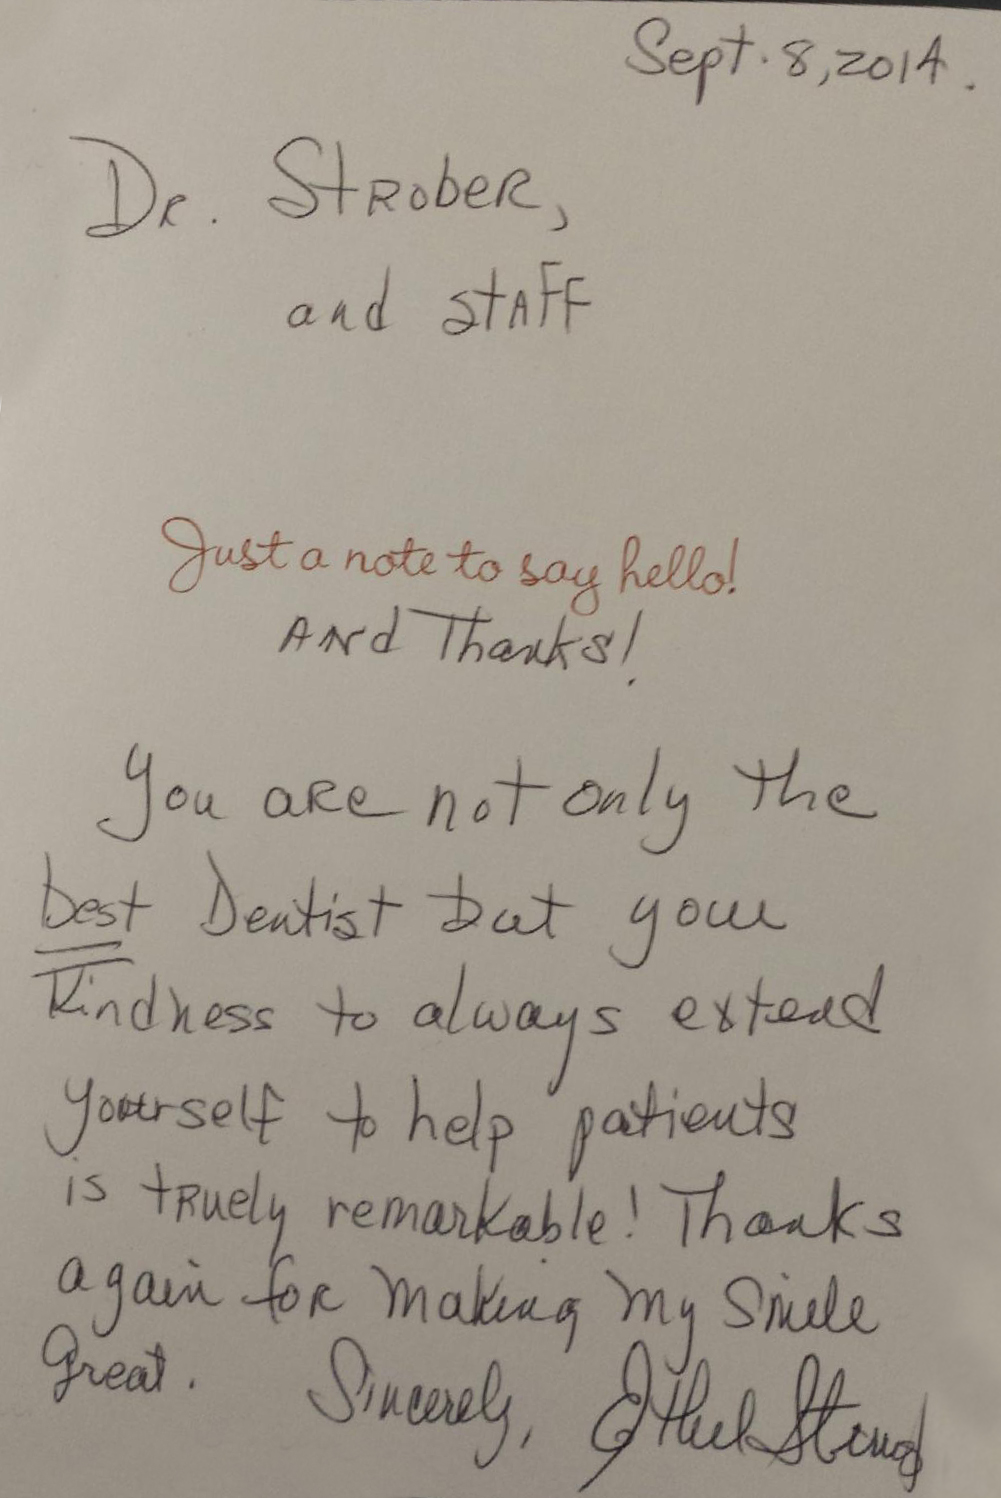 Sept. 8, 2014.
Dr. Strober,
and staff
Just a note to say hello!
And Thanks!
You are not only the
best Dentist but your
Kindness to always extend
yourself to help patients
is truely remarkable! Thanks
again for making my smile
great. Sincerely, Ethel